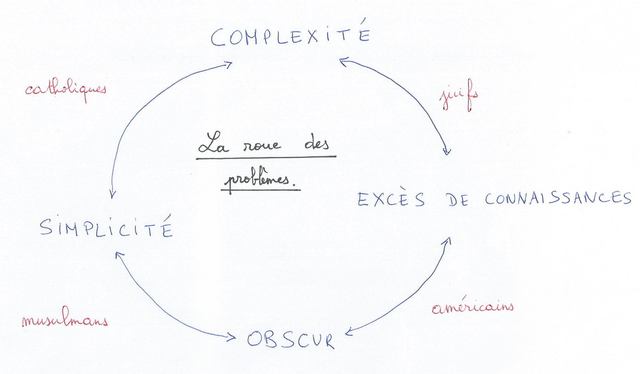 COMPLEXITÉ
catholiques
juifs
La roue des
problèmes.
EXCÈS DE CONNAISSANCES
SIMPLICITÉ
musulmans
américains
OBSCUR